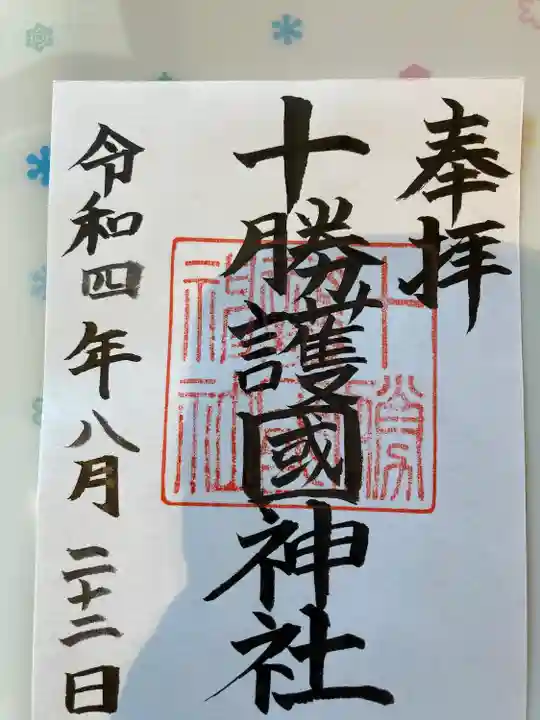 奉拝
十勝護國神社
令和四年八月二十二日
十勝護國神社